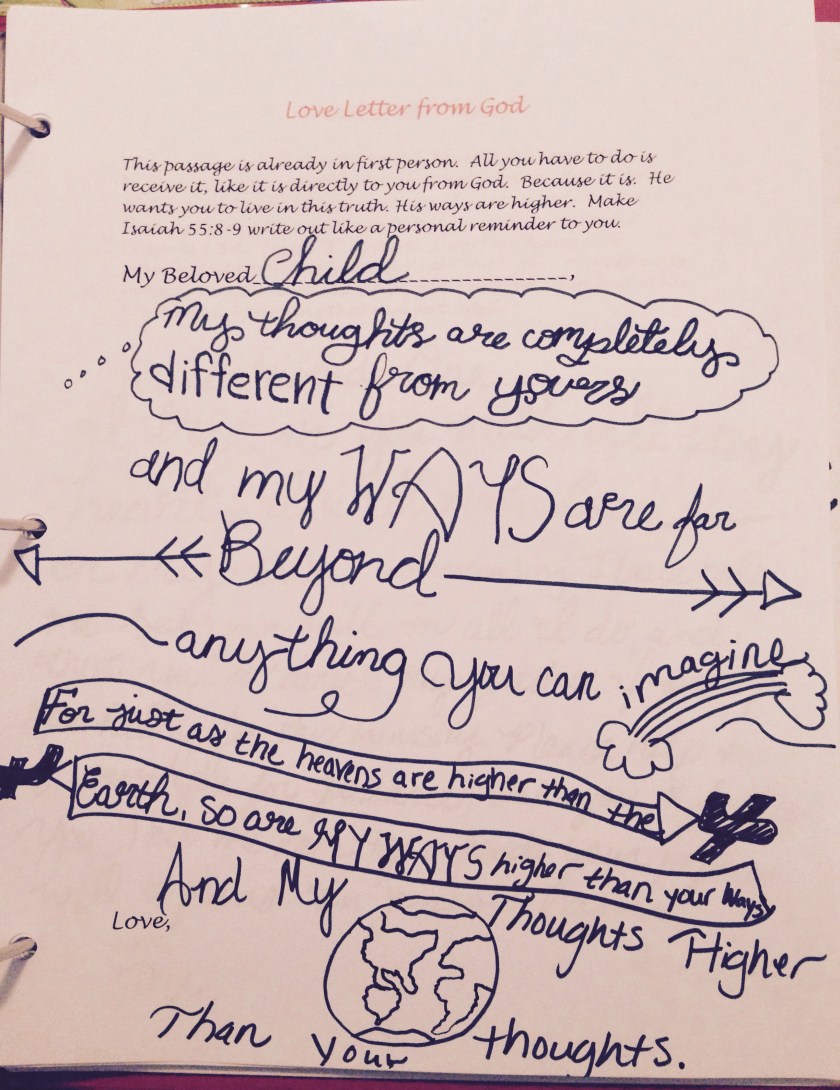 Love Letter from God
This passage is already in first person. All you have to do is
receive it, like it is directly to you from God. Because it is. He
wants you to live in this truth. His ways are higher. Make
Isaiah 55:8-9 write out like a personal reminder to you.
My Beloved Child,
My thoughts are completely
different from yours
and my WAYS are far
Beyond
anything you can imagine
For just as the heavens are higher than the
Earth, so are MY WAYS higher than your Ways
And My Thoughts Higher
Love,
Than your thoughts.